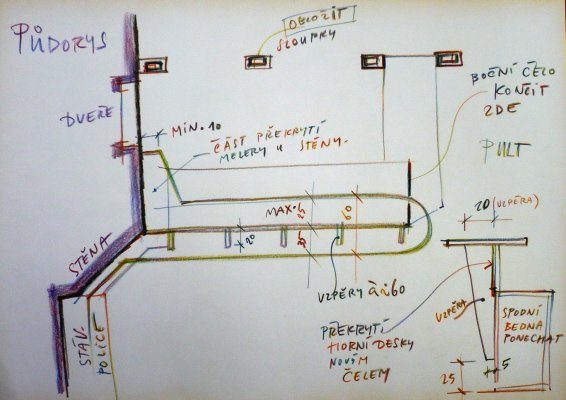 PŮDORYS
OBLOŽIT
SLOUPKY
BOČNÍ ČELO
KONČIT
ZDE
DVEŘE
MIN. 10
ČÁST PŘEKRYTÍ
U STĚNY.
PULT
20 (VZPĚRA)
MAX.
25
60
20
35
STĚNA
VZPĚRY À 60
STÁV.
POLICE
PŘEKRYTÍ
HORNÍ DESKY
NOVÝM
ČELEM
VZPĚRA
SPODNÍ
BEDNA
PONECHAT
5
25